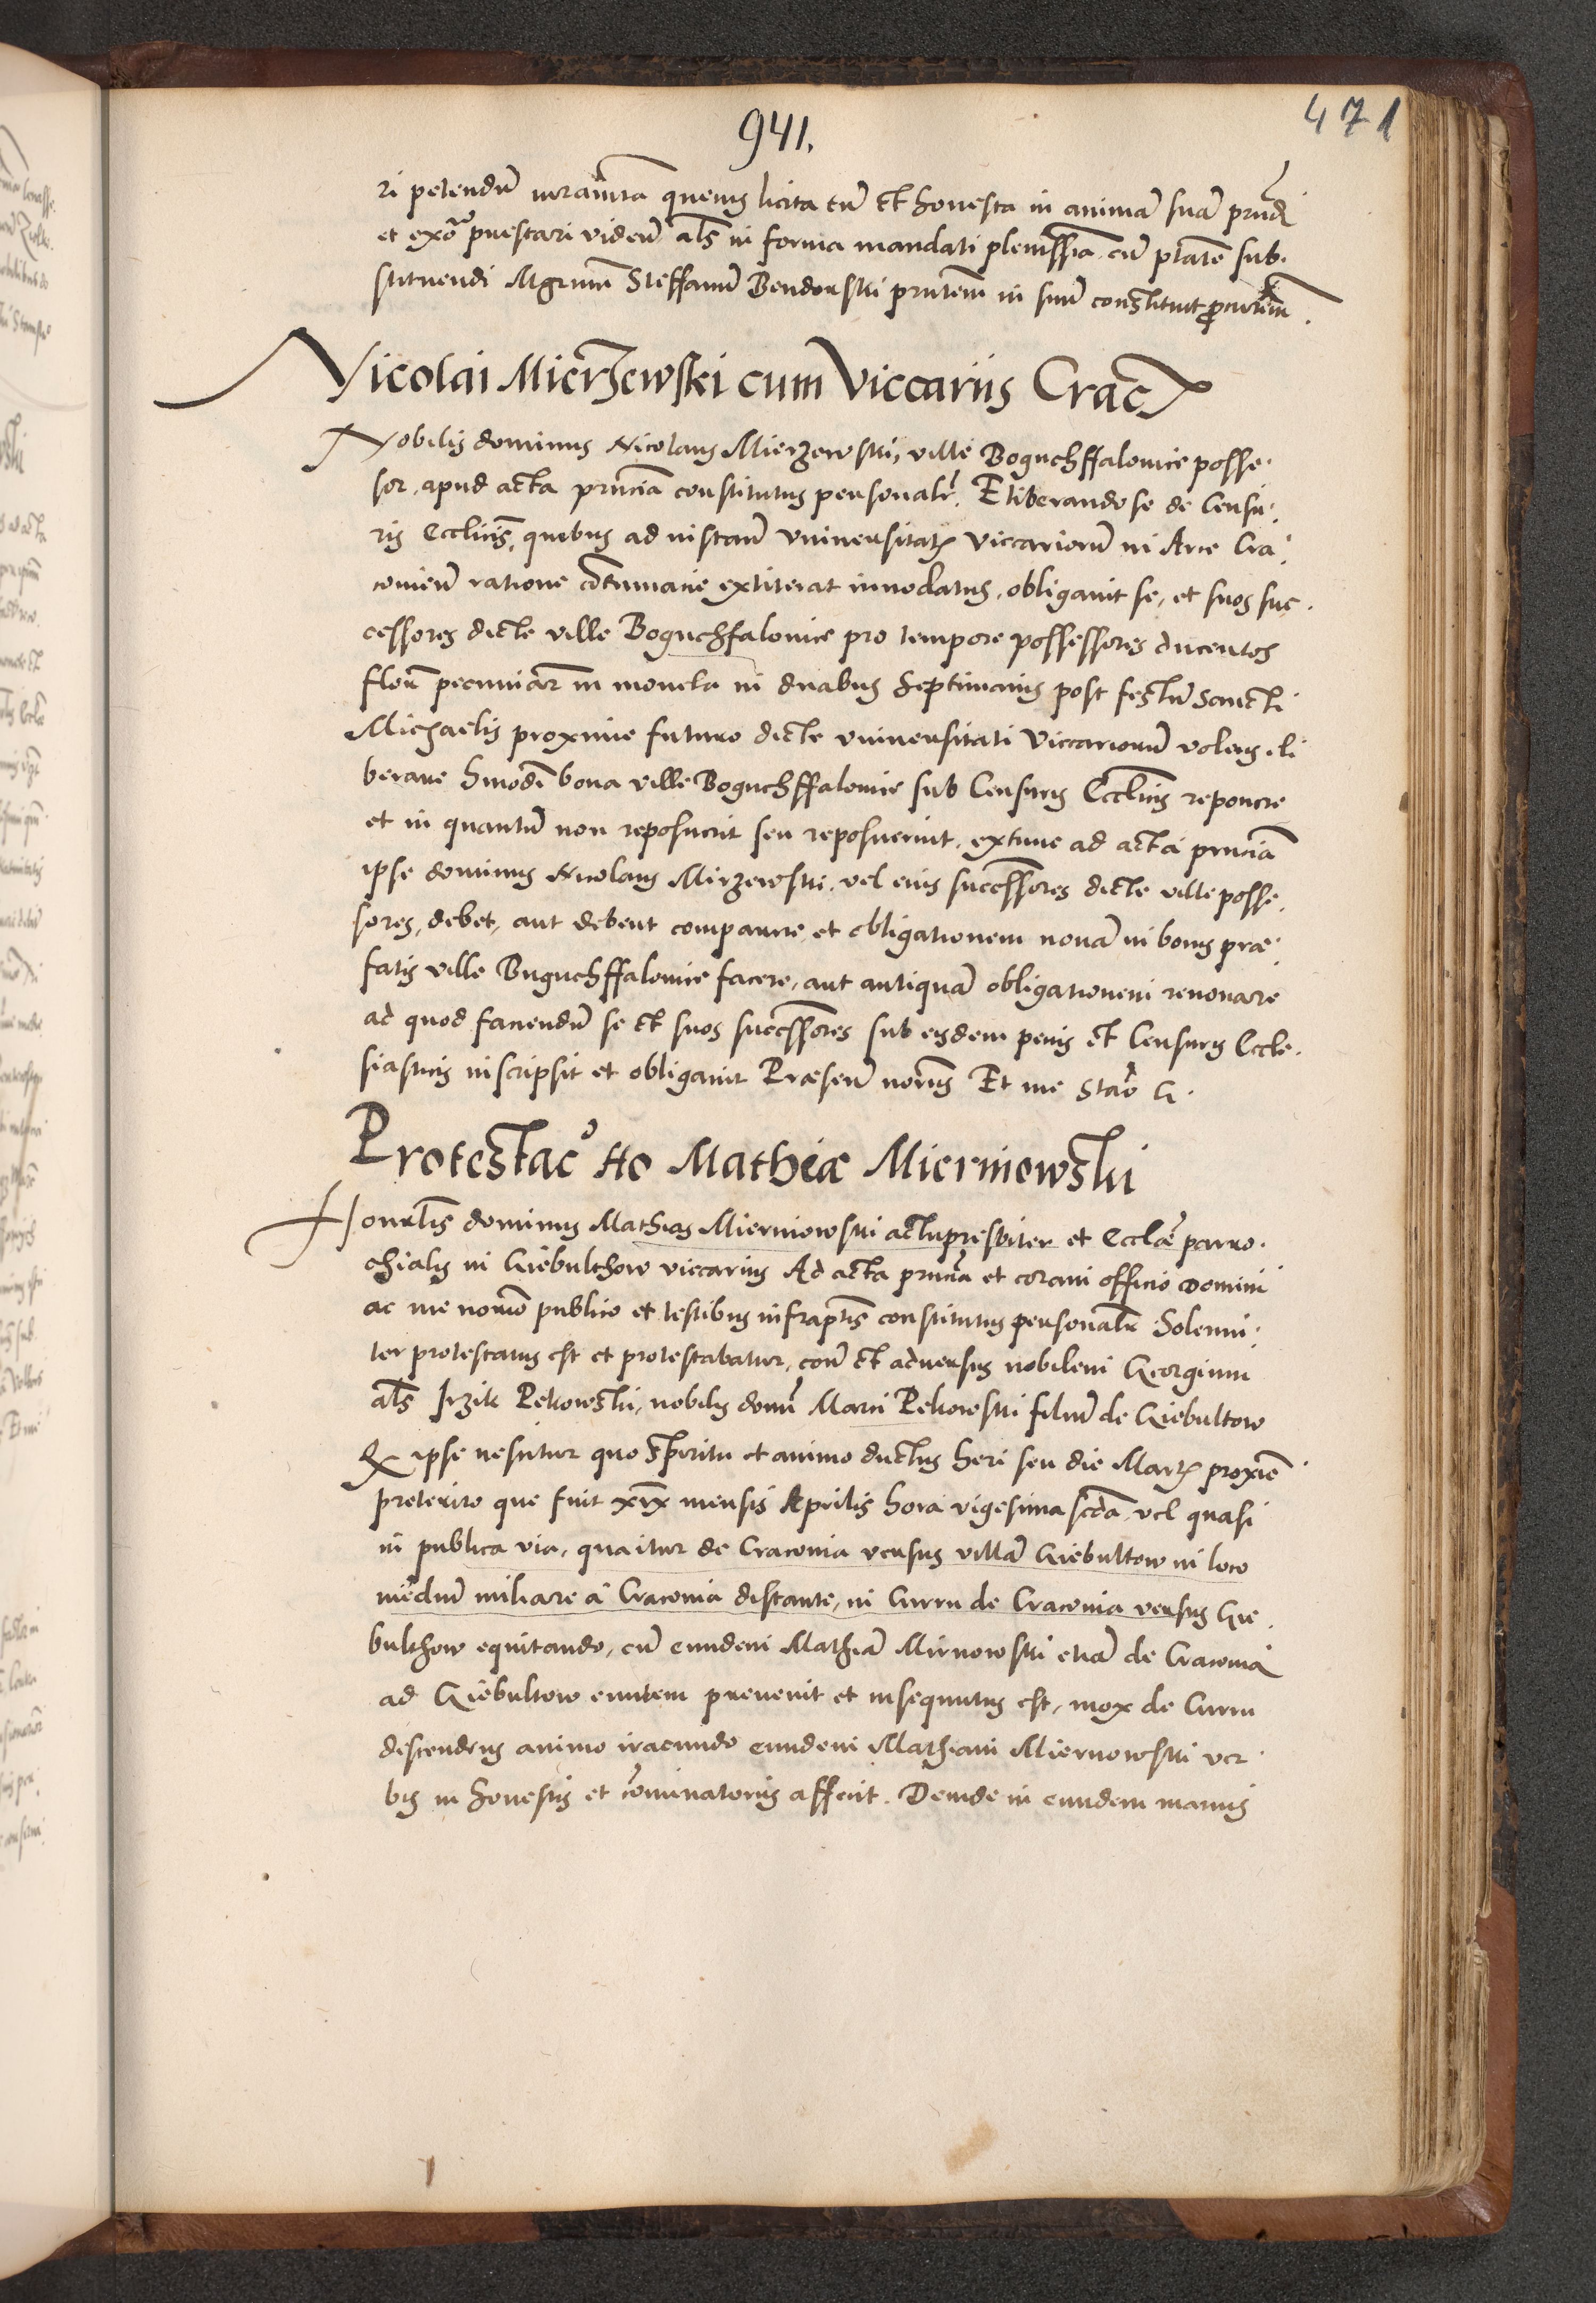 941.
471
ri petendũ iuramta quevis licita tñ et honesta in animã suã prñdi
et exõ pnestari videñ als in forma mandati plenissia cũ ptate sub-
stituendi Mgrum Steffanũ Bendonski pntem in suũ constituit procurem.
Nicolai Mierzewski cum Viccariis Crac
Nobilis dominus Nicolaus Mierzewski, ville Boguchffalovice posse-
sor, apud acta prncia constitutus personalr. Et liberando se de Censu-
ris Ecclicis, quibus ad instanc̃ Vniversitatis Viccariorũ in Arce Cra-
covien̄ ratione cõtumacie extiterat innodatus, obligavit se, et suos suc-
cessores dicte ville Boguchfalovice pro tempore possessores ducentos
floñ pecuniar in moneta in duabus septimanis post festũ Sancti
Michaelis proxime futuro dicte vniversitati Viccariorũ volens li
berare hmodi bona ville Boguchffalovice sub Censuris Ecclicis reponere
et in quantũ non reposuerit seu reposuerint, extunc ad acta prncia
ipse dominus Nicolaus Mirzewski vel eius successores dicte ville posse-
sores, debet, aut debent comparere, et obligationem novã in bonis præ-
fatis ville Buguchffalovice facere, aut antiquã obligationem renovare
ad quod faciendũ se et suos successores sub eisdem penis et Censuris Eccle-
siasticis inscripsit et obligavit Præsen̄ noriis Et me Stao G.
Protestaco tto Mathiæ Mierniowski
Honrlis dominus Mathias Mierniowski actupresbiter et Ecclæ parro-
chialis in Giebulthow viccarius Ad acta prncia et coram officio Domini
ac me norio publico et testibus infraptis constitutus personalr Solenni-
ter protestatus est et protestabatur, con̄ et adversus nobilem Georgium
als Irzik Pekowski, nobilis domi Marci Pekowski filiũ de Giebultow
Qx ipse nescitur quo spiritu et animo ductus heri seu die Martis proxie
preterito que fuit xix mensis Aprilis hora vigesima scda vel quasi
in publica via, qua itur de Cracovia versus villã Giebultow in loco
mediũ miliare a Cracovia distante, in Curru de Cracovia versus Gie-
bulthow equitando, cũ eundem Mathiã Mirnowski etiã de Cracovia
ad Giebultow euntem prevenit et insequutus est, mox de Curru
discendens animo iracundo eundem Mathiam Miernowski ver-
bis in honestis et cõminatoriis affecit. Deinde in eundem manus